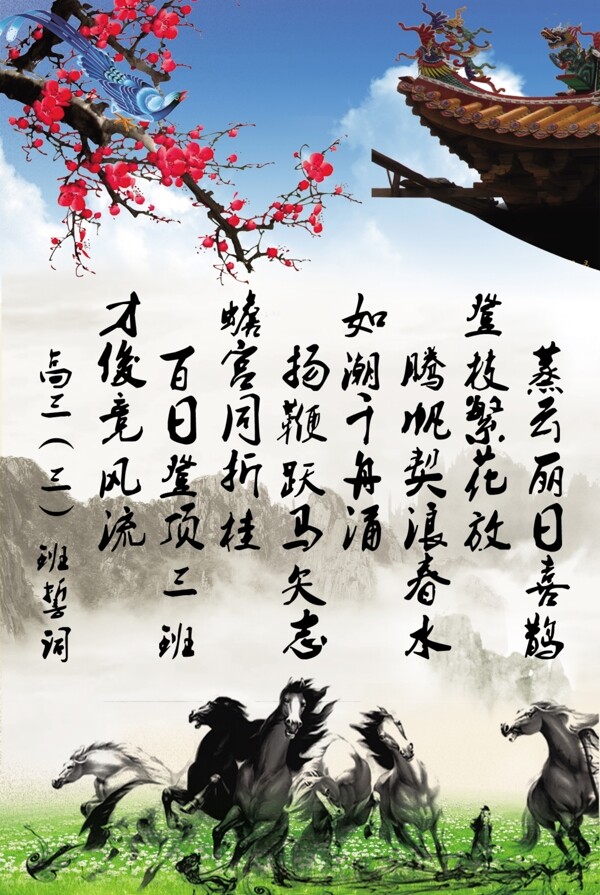 蒸云丽日喜鹊
登枝繁花放
腾帆契浪春水
如潮千舟涌
扬鞭跃马矢志
蟾宫同折桂
百日登顶三班
才俊竞风流
高三（三）班誓词